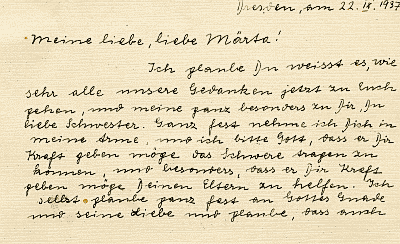 Dresden, am 22. IX. 1937
Meine liebe, liebe Märta!
Ich glaube Du weisst es, wie
sehr alle unsere Gedanken jetzt zu Euch
gehen, und meine ganz besonders zu Dir, Du
liebe Schwester. Ganz fest nehme ich Dich in
meine Arme, und ich bitte Gott, dass er Dir
Kraft geben möge das Schwere tragen zu
können, und besonders, dass er Dir Kraft
geben möge Deinen Eltern zu helfen. Ich
selbst glaube ganz fest an Gottes Gnade
und seine Liebe und glaube, dass auch